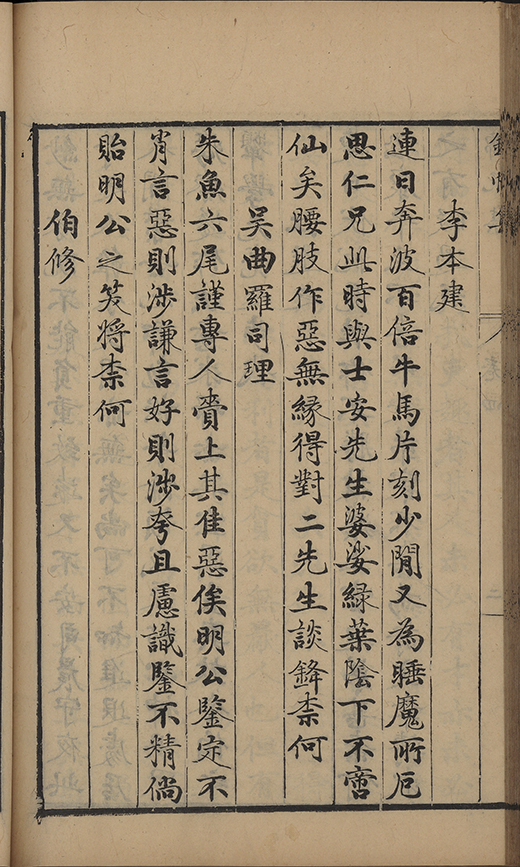 錦帆集
卷四
二
李本建
連日奔波百倍牛馬片刻少閒又為睡魔所戹
思仁兄此時與士安先生婆娑緑葉陰下不啻
仙矣腰肢作惡無緣得對二先生談鋒柰何
吴曲羅司理
朱魚六尾謹專人賷上其佳惡俟明公鑒定不
肖言惡則涉謙言好則涉夸且慮識鑒不精倘
貽明公之笑將柰何
伯修